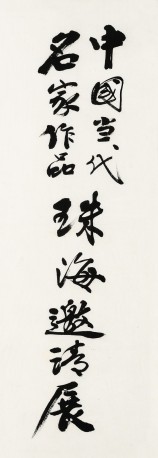 中國当代
名家作品
珠海邀请展